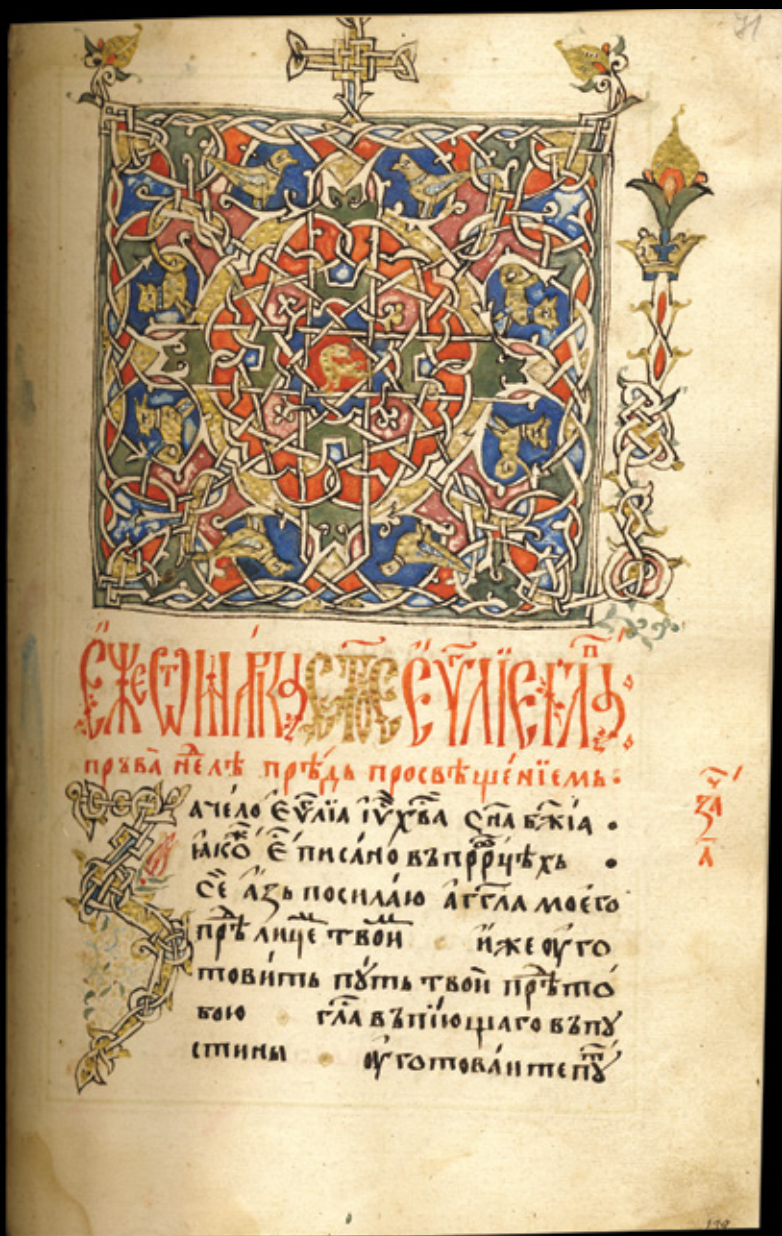 71
Є҆же ѿ Ма́рка ст҃ое єѵⷢ҇лїе гла́ⷡ҇
пръваⷨ нⷣелѣ прѣⷣдь просвѣще́нїемь⁘
Заче́ло єѵⷢ҇лїа і҆ѵ҃ хв҃а сн҃а бж҃їа •
ꙗ҆коⷤ є҆ⷭ҇ пи́сано въ прⷪ҇рцѣхь •
Се а҆зь посила́ю а҆́гг҃ла моего
прѣⷣ лице твоиⷨ и҆же ᲂуго
товить пꙋ́ть твои прѣⷣ то
бою гла҃ въпїю́щаго въ пꙋ
стини ᲂуготова́ите пꙋⷮ
заⷱ҇
а҃
139